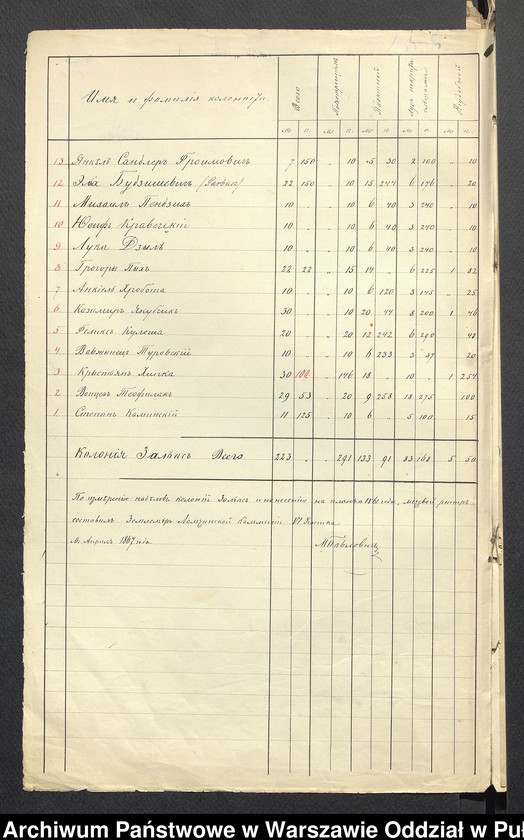 Имя и фамилія колонистъ. Всего Пахатной Луга Неудобной
м. п. м. п. м. п. м. п. м. п.
13 Янкель Сандлеръ Фроимовичъ 7 150 „ 10 5 30 2 100 „ 10
12 Эва Будзишевичъ (Barbara) 22 150 „ 10 15 244 6 176 „ 20
11 Михаилъ Пендзихъ 10 „ „ 10 6 40 3 240 „ 10
10 Юзефъ Кравецкій 10 „ „ 10 6 40 3 240 „ 10
9 Лука Дзылъ 10 „ „ 10 6 40 3 240 „ 10
8 Григоры Пыхъ 22 22 „ 15 14 „ 6 225 1 82
7 Анкіель Яробота 10 „ „ 10 6 120 3 145 „ 25
6 Казимиръ Якубикъ 30 „ „ 10 20 44 8 200 1 46
5 Феликсъ Кулеша 20 „ „ 20 12 242 6 290 „ 48
4 Вавжинецъ Туровскій 10 „ „ 10 6 233 3 37 „ 20
3 Крыстьянъ 30 100 „ 146 18 „ 10 „ 1 254
2 Теофилакъ 29 53 „ 20 9 258 18 275 „ 100
1 Степанъ Каминскій 11 125 „ 10 6 „ 5 100 „ 15
Колонія Зальасъ Всего 223 „ „ 291 133 91 83 168 5 50
По измѣренію надѣловъ колоніи Зальасъ и нанесенію на планъ 1866 года,
составилъ Землемѣръ Ломжинской Коммисіи VI
М. Апрѣль 1867 года М Павловичъ
Archiwum Państwowe w Warszawie Oddział w Pu